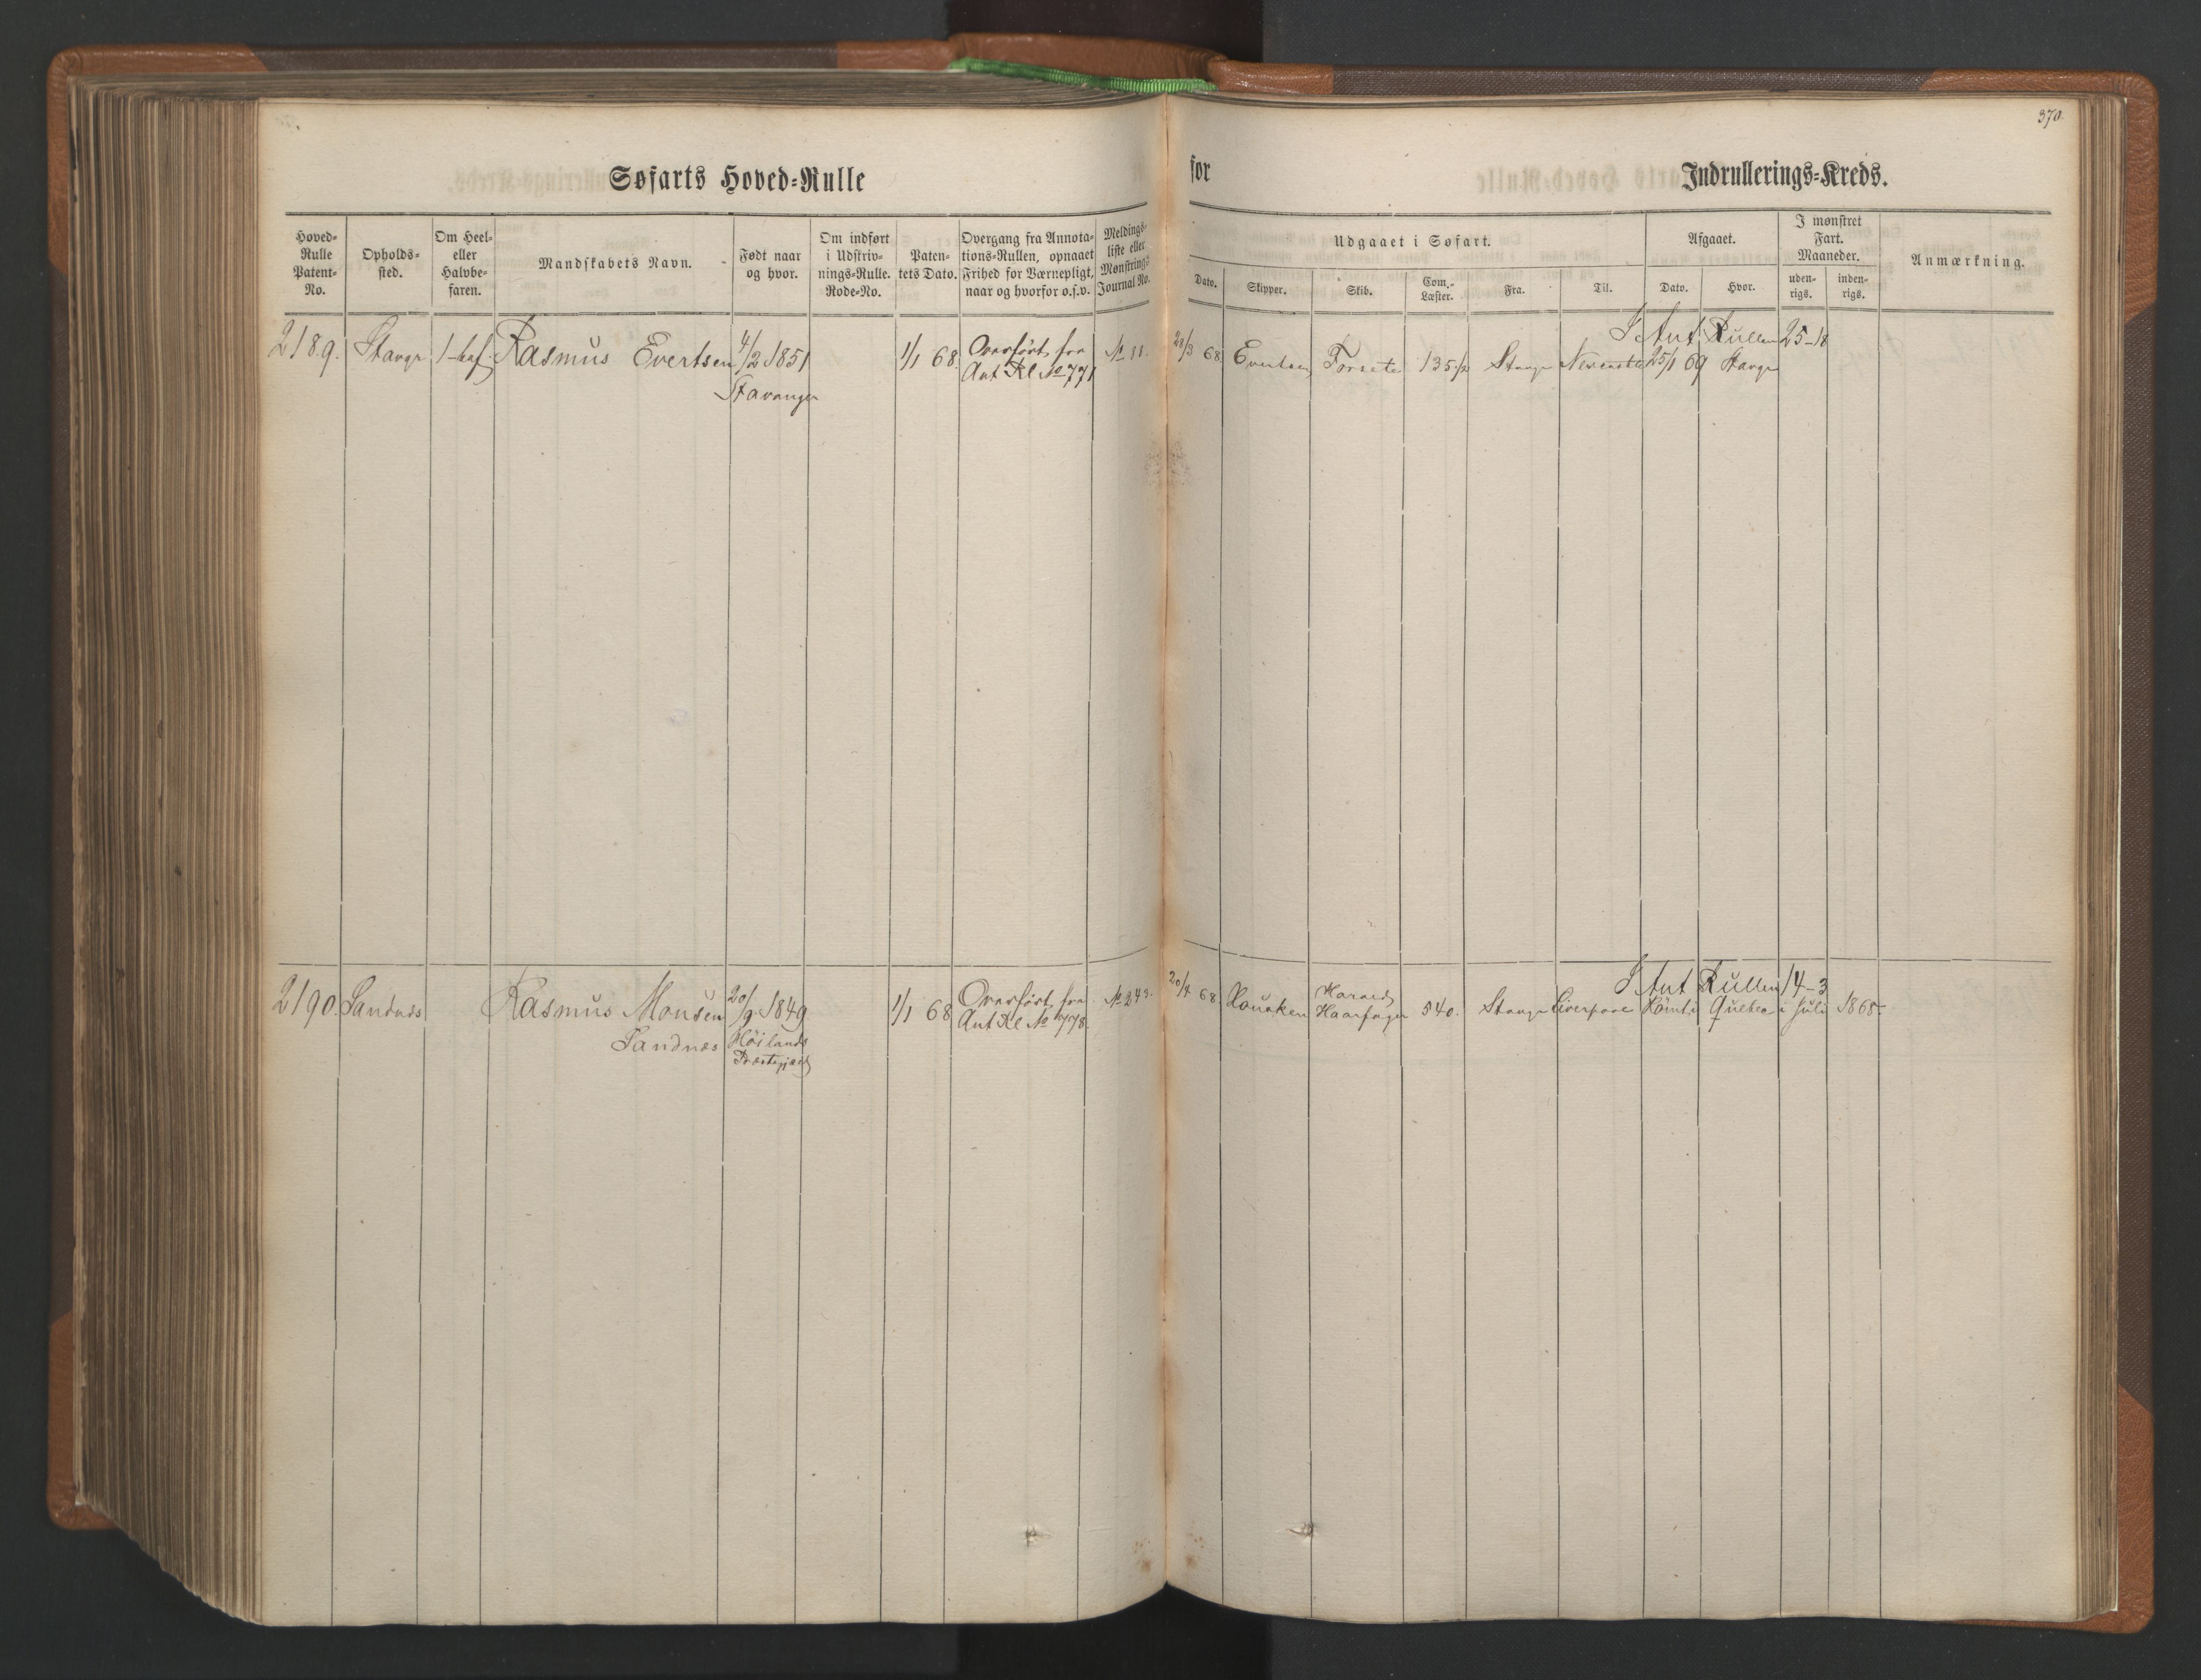 370.
Søfarts Hoved=Rulle for Indrullerings=Kreds.
Hoved=Rulle Patent=No.
Opholds=sted.
Om Heel= eller Halvbe=faren.
Mandskabets Navn.
Født naar og hvor.
Om indført i Udskriv=nings=Rulle. Rode=No.
Paten=tets Dato.
Overgang fra Annota=tions=Rullen, opnaaet Frihed for Værnepligt, naar og hvorfor o.s.v.
Meldings=liste eller Mønstrings Journal No.
Udgaaet i Søfart.
Dato.
Skipper.
Skib.
Com.=Læster.
Fra.
Til.
Afgaaet.
Dato.
Hvor.
I mønstret Fart. Maaneder.
uden=rigs.
inden=rigs.
Anmærkning.
I Ant Rullen 25-18
2189. Stavgr Rasmus Evertsen 4/2 1851 1/1 68. Overført fra No 11. 28/3 68 Evertsen Forsete 135 1/2 Stavgr 25/1 69 Stavgr
Ant Rl No 771
Stavanger
I Ant Rullen 14-3
2190. Sandnes Rasmus Monsen 20/9 1849 1/1 68 Overført fra No 243. 20/4 68 Harald 540. Stavgr Liverpool Rømt i Quebec i Juli 1868.
Haarfager
Ant Rl No 778.
Sandnæs Høilands
Præstegjæld